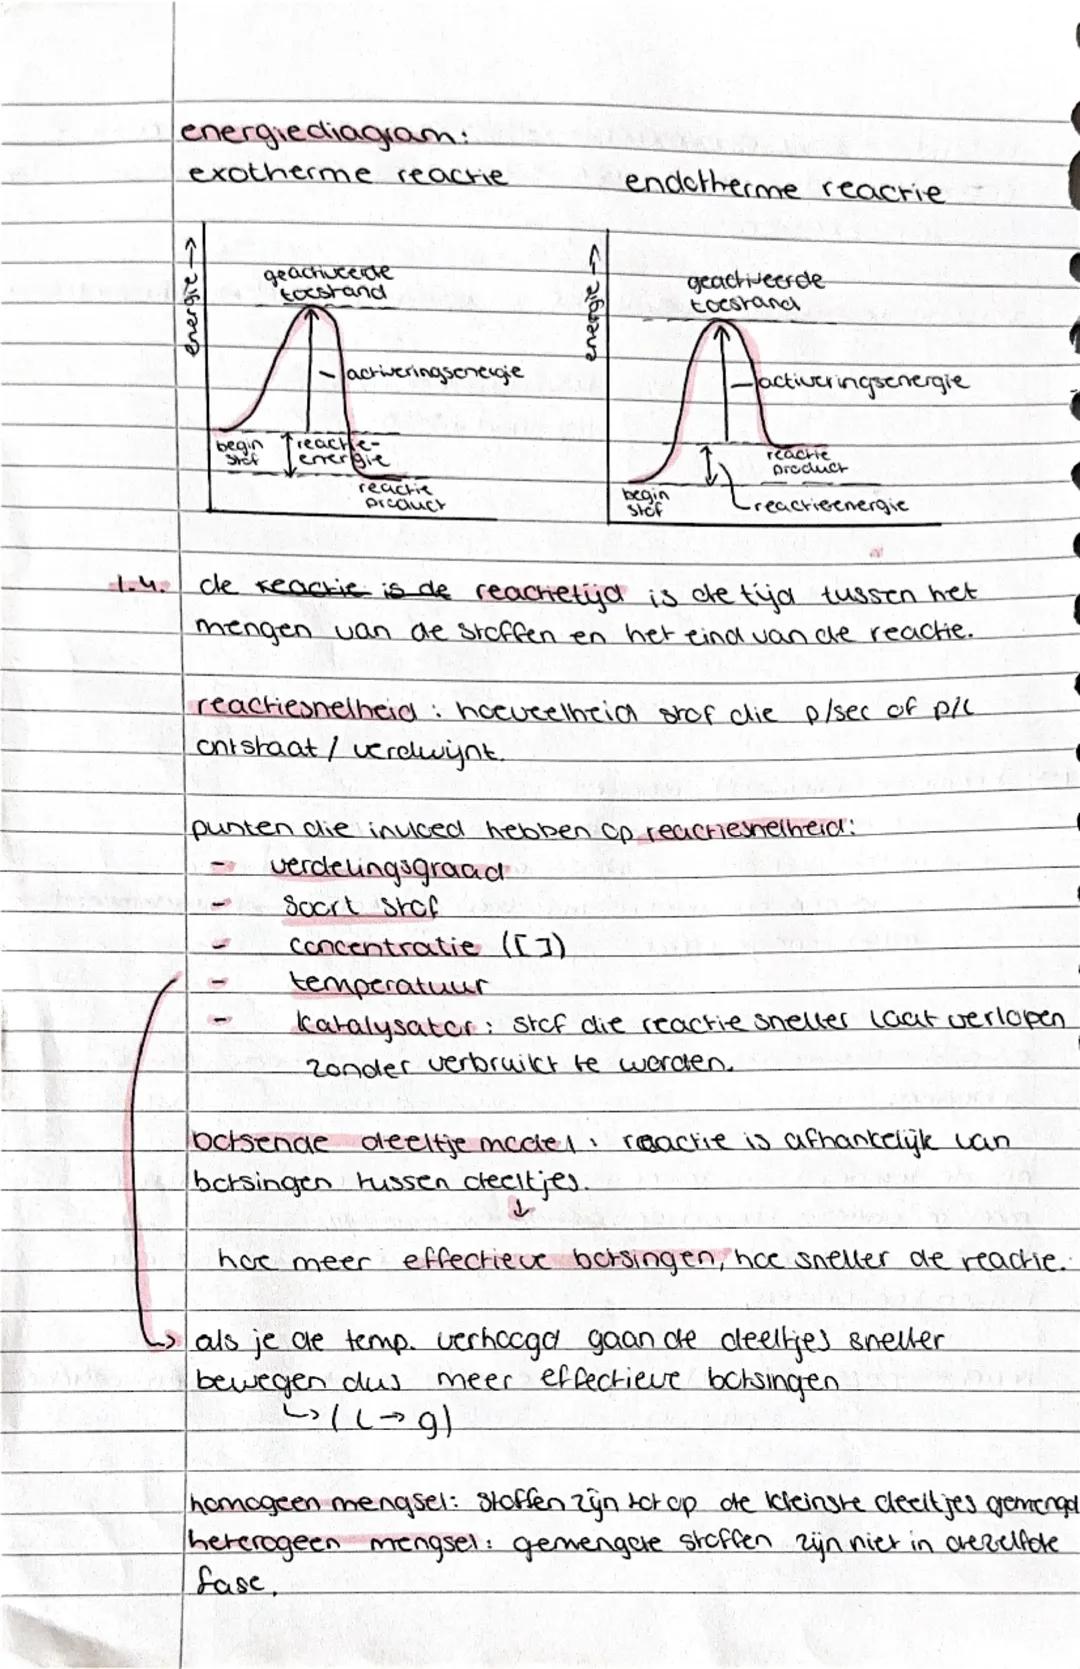 energiediagram:
exotherme reactie
endotherme reactie
energie →
geactiveerde
toestand
activeringsenergie
begin
stof
reactie-
energie
reactie
product
energie →
geactiveerde
toestand
activeringsenergie
reactie
product
begin
stof
reactieenergie
1.4. de reactie is de reactietijd is de tijd tussen het
mengen van de stoffen en het eind van de reactie.
reactiesnelheid : hoeveelheid stof die p/sec of p/L
ontstaat / verdwijnt.
punten die invloed hebben op reactiesnelheid:
- verdelingsgraad
- soort stof
- concentratie ([ ])
- temperatuur
- katalysator: stof die reactie sneller laat verlopen
zonder verbruikt te worden.
botsende deeltje model: reactie is afhankelijk van
botsingen tussen deeltjes.
↓
hoe meer effectieve botsingen, hoe sneller de reactie.
↳ als je de temp. verhoogd gaan de deeltjes sneller
bewegen dus meer effectieve botsingen
↳ (l → g)
homogeen mengsel: stoffen zijn tot op de kleinste deeltjes gemengd
heterogeen mengsel: gemengde stoffen zijn niet in dezelfde
fase.